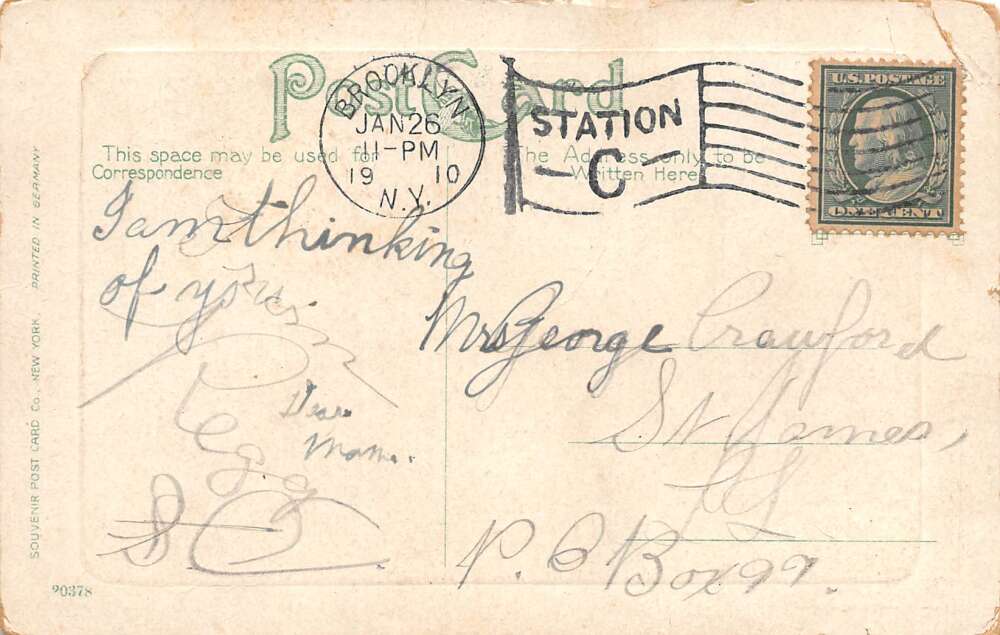 Post Card
BROOKLYN
JAN 26
11-PM
19 10
N.Y.
STATION
C
U.S. POSTAGE
ONE CENT
This space may be used for
Correspondence
The Address only to be
Written Here
I am thinking
of you.
Dear
Mom.
Mrs George Crawford
St James,
P. O Box 99.
SOUVENIR POST CARD Co., NEW YORK. PRINTED IN GERMANY
20378